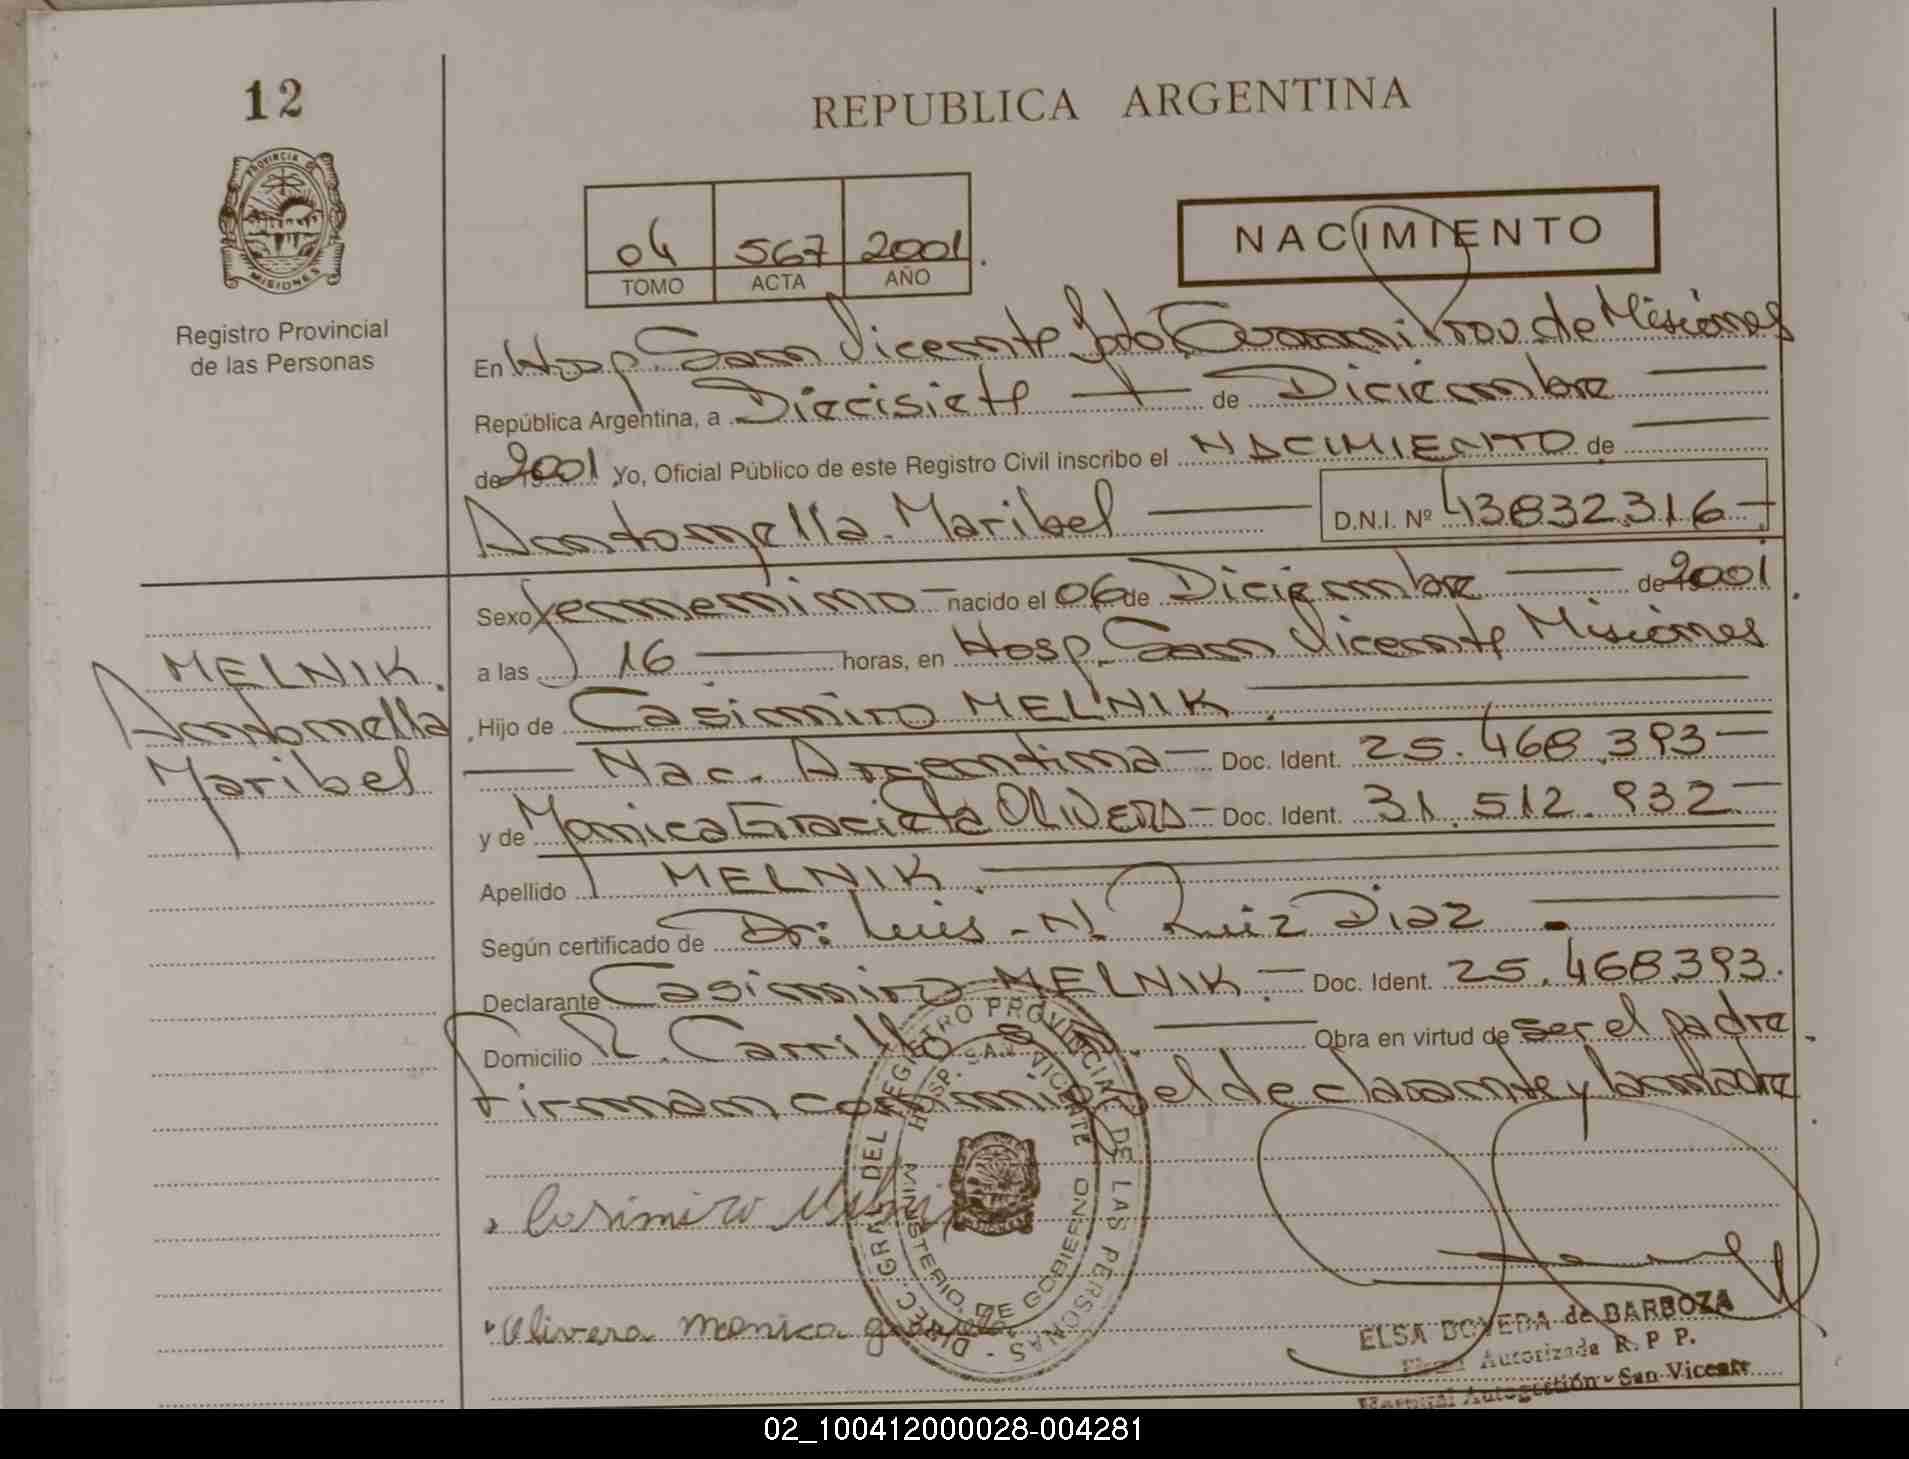 12
REPUBLICA ARGENTINA
PROVINCIA DE
MISIONES
Registro Provincial
de las Personas
04 567 2001.
TOMO ACTA AÑO
NACIMIENTO
En Hosp. San Vicente Dpto Guarani Prov. de Misiones
República Argentina, a Diecisiete de Diciembre
de 2001 Yo, Oficial Público de este Registro Civil inscribo el NACIMIENTO de
Anntonella Maribel D.N.I. Nº 43832.316
Sexo femenino nacido el 06 de Diciembre de 2001.
a las 16 horas, en Hosp. San Vicente Misiones
MELNIK.
Anntonella
Maribel
Hijo de Casimiro MELNIK.
Nac. Argentina Doc. Ident. 25.468.393
y de Monica Graciela OLIVERA Doc. Ident. 31.512.932
Apellido MELNIK.
Según certificado de Dr: Luis - N. Ruiz Diaz
Declarante Casimiro MELNIK. Doc. Ident. 25.468.393.
Domicilio R. Carrillo Obra en virtud de ser el padre.
Firman conmigo el declarante y la madre.
Casimiro Melnik
Olivera monica graciela
DIREC. GRAL. DEL REGISTRO PROVINCIAL DE LAS PERSONAS
HOSP. SAN VICENTE
MINISTERIO DE GOBIERNO
ELSA BOVEDA de BARBOZA
Autorizada R. P P.
Hospital Autogestión - San Vicente
02_100412000028-004281